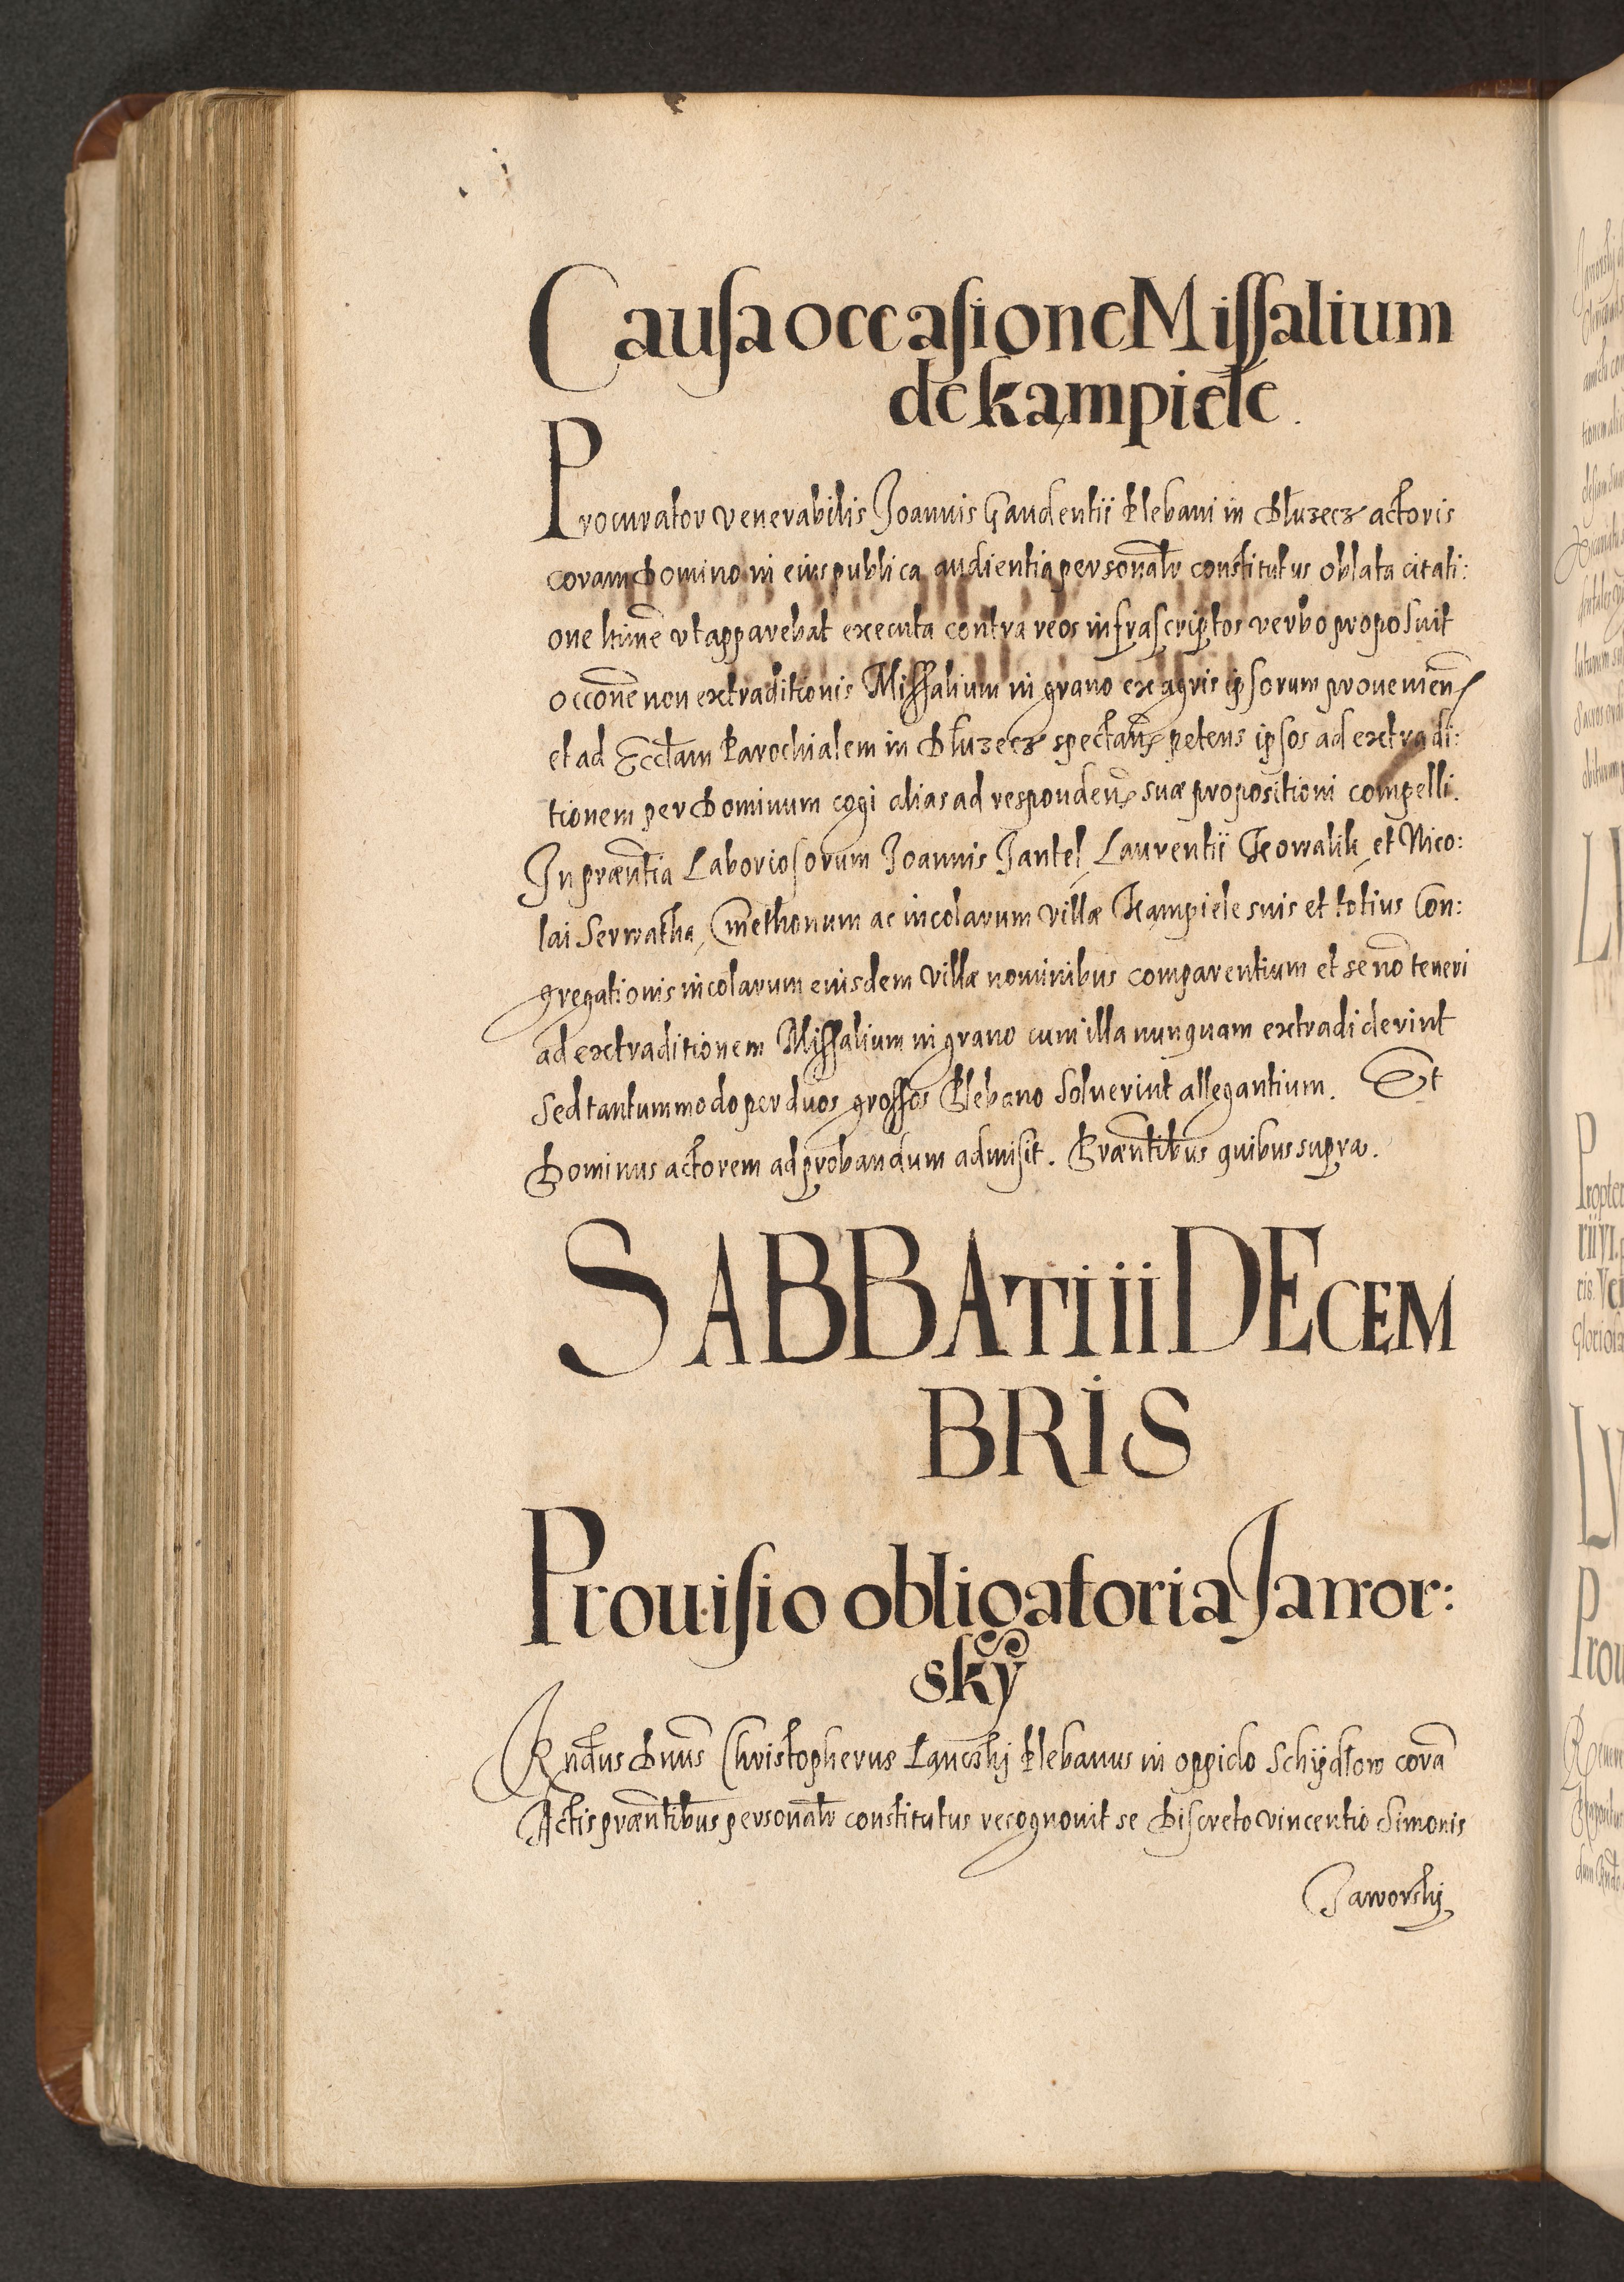 Causa occasione Missalium
de Kampiele.
Procurator venerabilis Joannis Gaudentii Plebani in Dłuzecz actoris
coram Domino in eius publica audientia personalr constitutus oblata citati:
one ltimē vt apparebat executa contra reos infrascriptos verbo proposuit
occōne non extraditionis Missalium in grano ex agris ipsorum prouenien̄
et ad Eccłam Parochialem in Dłuzecz spectan̄ petens ipsos ad extradi:
tionem per Dominum cogi alias ad responden̄ suæ propositioni compelli.
In præntia Laboriosorum Joannis Jantel Laurentii Kowalik et Nico:
lai Serwatka, Cmethonum ac incolarum villæ Kampiele suis et totius Con:
gregationis incolarum eiusdem villæ nominibus comparentium et se nō teneri
ad extraditionem Missalium in grano cum illa nunquam extradiderint
Sed tantummodo per duos grossos Plebano Soluerint allegantium. Et
Dominus actorem ad probandum admisit. Præntibus quibus supra.
SABBATI iii DECEM
BRIS
Prouisio obligatoria Jawor:
skÿ
Rndus Dnus Christopherus Plebanus in oppido Schÿdłow corā
Actis præntibus personalr constitutus recognouit se Discreto Vincentio Simonis
Jaworskj